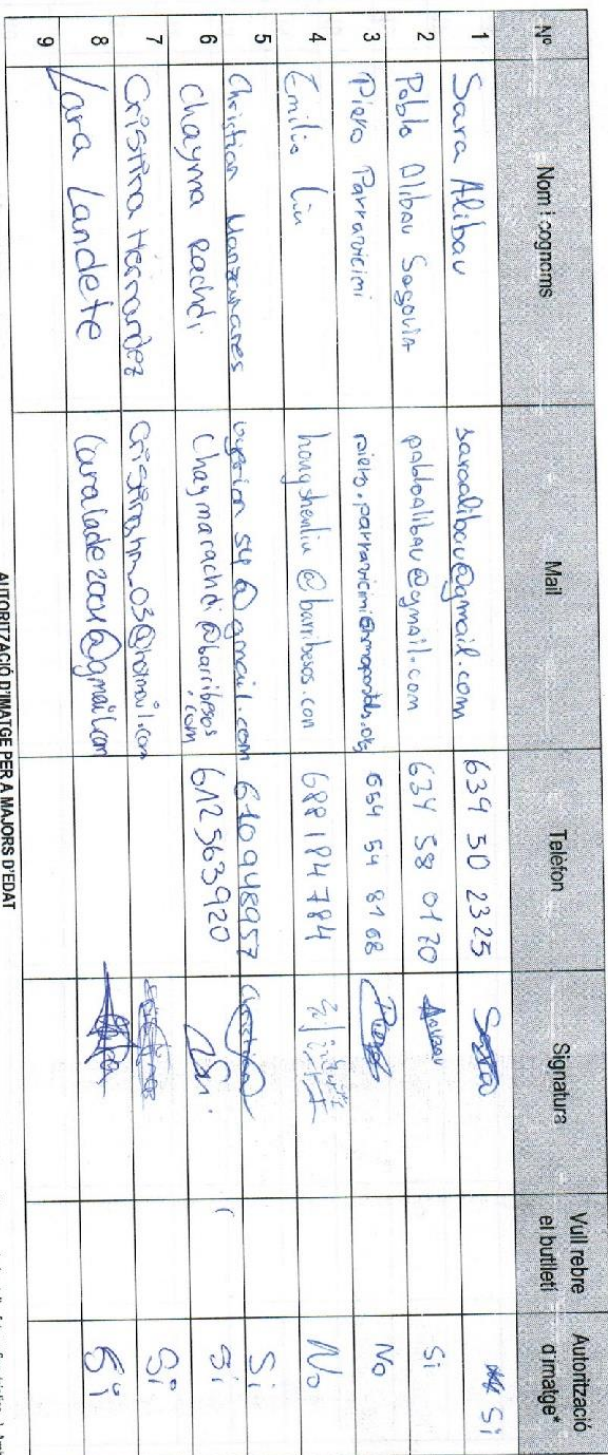 Nº Nom i cognoms Mail Telèfon Signatura Vull rebre el butlletí Autorització d'imatge*
1 Sara Alibau saraalibau@gmail.com 639 50 2325 Si
2 Pablo Alibau Segovia pabloalibau@gmail.com 634 58 01 70 Si
3 Piero Parravicini 654 54 8168 No
4 Emilio Liu hongshenliu@barribesos.com 688184784 No
5 Christian Manzanares 610948957 Si
6 Chayma Rachdi Chaymarachdi@barribesos.com 612563920 Si
7 Cristina Hernandez Cristinahm_03@hotmail.com Si
8 Lara Landete Si
9
AUTORITZACIÓ D'IMATGE PER A MAJORS D'EDAT